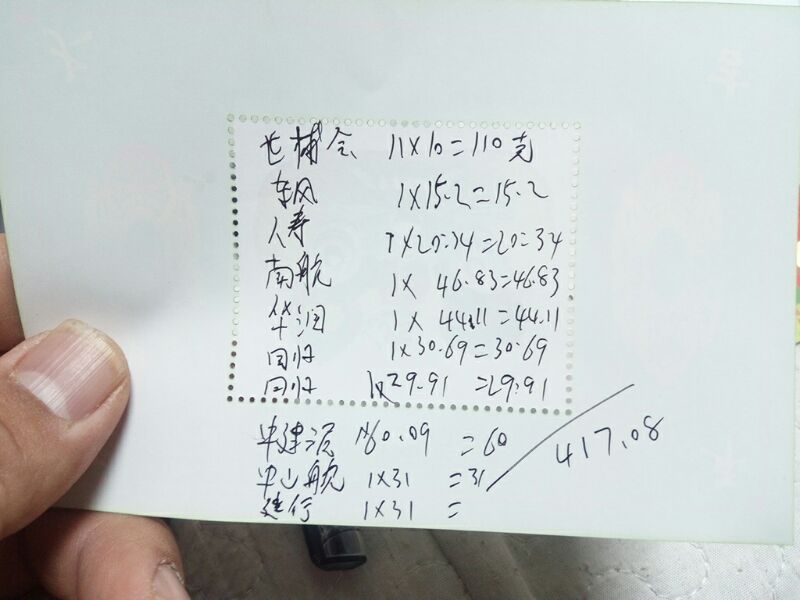 11×10=110克
东风 1×15.2=15.2
人寿 1×20.34=20.34
南航 1× 46.83=46.83
华润 1× 44.11=44.11
回归 1×30.69=30.69
回归 1×29.91 =29.91
中建 1×60.09 =60
中山舰 1×31 =31
建行 1×31 =
417.08